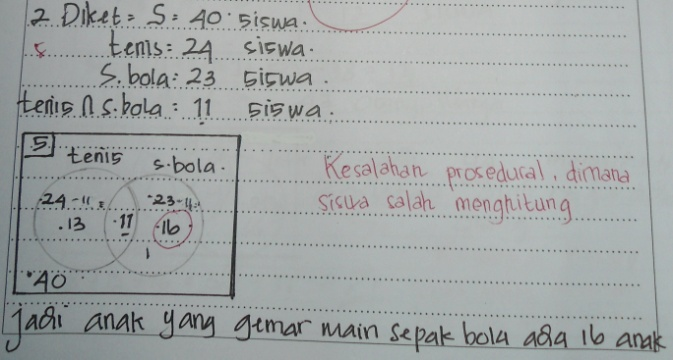 2 Diket = S = 40 siswa.
5 tenis = 24 siswa.
S. bola : 23 siswa.
tenis ∩ s.bola : 11 siswa.
S
tenis s.bola.
24-11= 23-11=
.13 .11 16
40
Kesalahan prosedural, dimana
siswa salah menghitung
Jadi anak yang gemar main sepak bola ada 16 anak